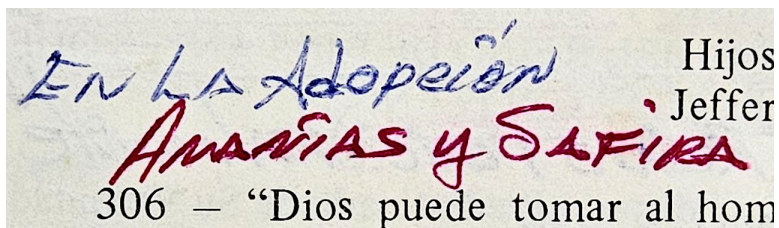 En La Adopción
Hijos
Jeffer
Ananías y Safira
306 – “Dios puede tomar al hom